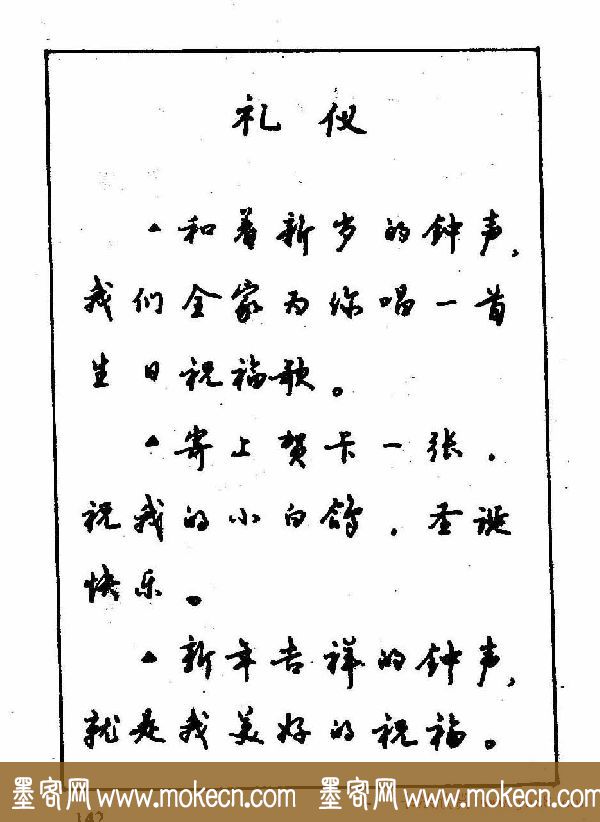 礼仪
▲和着新岁的钟声,
我们全家为你唱一首
生日祝福歌。
▲寄上贺卡一张,
祝我的小白鸽,圣诞
快乐。
▲新年吉祥的钟声,
就是我美好的祝福。
墨客网 www.mokecn.com 墨客网 www.mokecn.com
142